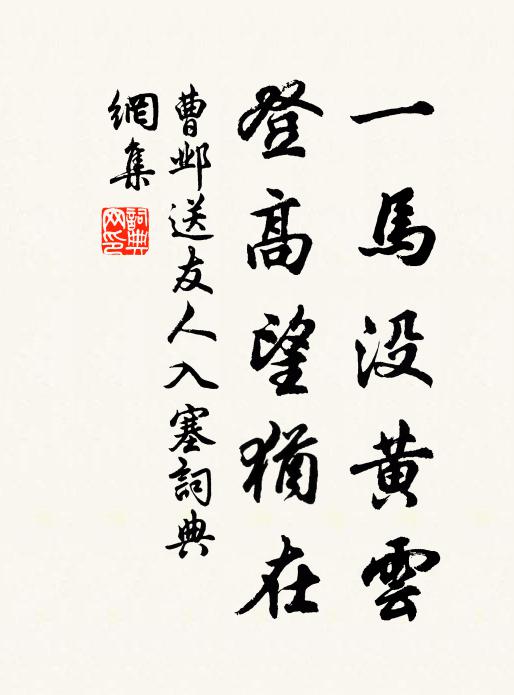 一馬没黄雲
登高望猶在
曹邺送友人入塞詞典
網集
詞典
网印